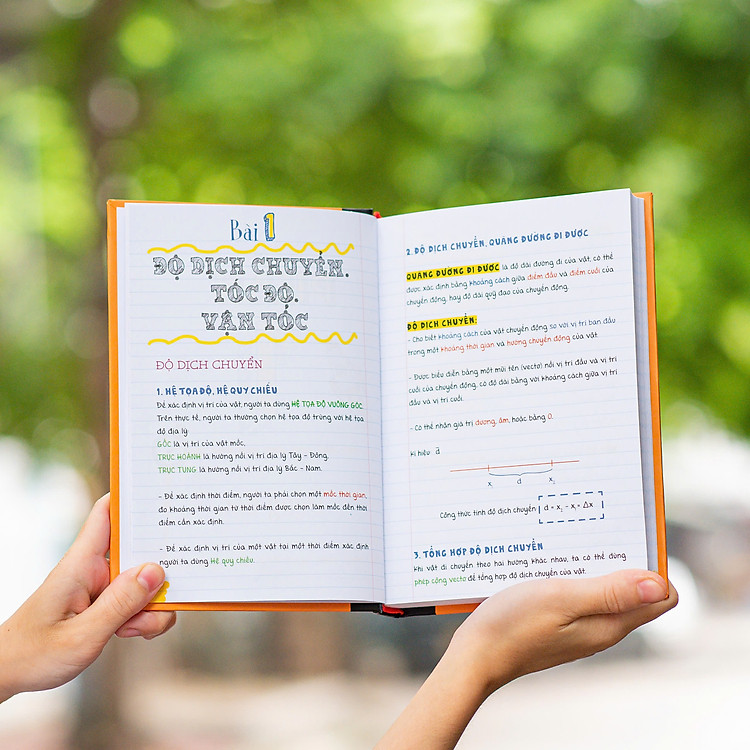 Bài 1
ĐỘ DỊCH CHUYỂN,
TỐC ĐỘ,
VẬN TỐC
ĐỘ DỊCH CHUYỂN
1. HỆ TỌA ĐỘ, HỆ QUY CHIẾU
Để xác định vị trí của vật, người ta dùng HỆ TỌA ĐỘ VUÔNG GÓC.
Trên thực tế, người ta thường chọn hệ tọa độ trùng với hệ tọa
độ địa lý.
GỐC là vị trí của vật mốc,
TRỤC HOÀNH là hướng nối vị trí địa lý Tây - Đông,
TRỤC TUNG là hướng nối vị trí địa Bắc - Nam.
- Để xác định thời điểm, người ta phải chọn một mốc thời gian,
đo khoảng thời gian từ thời điểm được chọn làm mốc đến thời
điểm cần xác định.
- Để xác định vị trí của một vật tại một thời điểm xác định
người ta dùng Hệ quy chiếu.
2. ĐỘ DỊCH CHUYỂN, QUÃNG ĐƯỜNG ĐI ĐƯỢC
QUÃNG ĐƯỜNG ĐI ĐƯỢC là độ dài đường đi của vật, có thể
được xác định bằng khoảng cách giữa điểm đầu và điểm cuối của
chuyển động, hay độ dài quỹ đạo của chuyển động.
ĐỘ DỊCH CHUYỂN:
- Cho biết khoảng cách của vật chuyển động so với vị trí ban đầu
trong một khoảng thời gian và hướng chuyển động của vật.
- Được biểu diễn bằng một mũi tên (vectơ) nối vị trí đầu và vị trí
cuối của chuyển động, có độ dài bằng với khoảng cách giữa vị trí
đầu và vị trí cuối.
- Có thể nhận giá trị dương, âm, hoặc bằng 0.
Kí hiệu: d⃗
x₁ d x₂
Công thức tính độ dịch chuyển: d = x₂ - x₁ = Δx
3. TỔNG HỢP ĐỘ DỊCH CHUYỂN
Khi vật di chuyển theo hai hướng khác nhau, ta có thể dùng
phép cộng vectơ để tổng hợp độ dịch chuyển của vật.